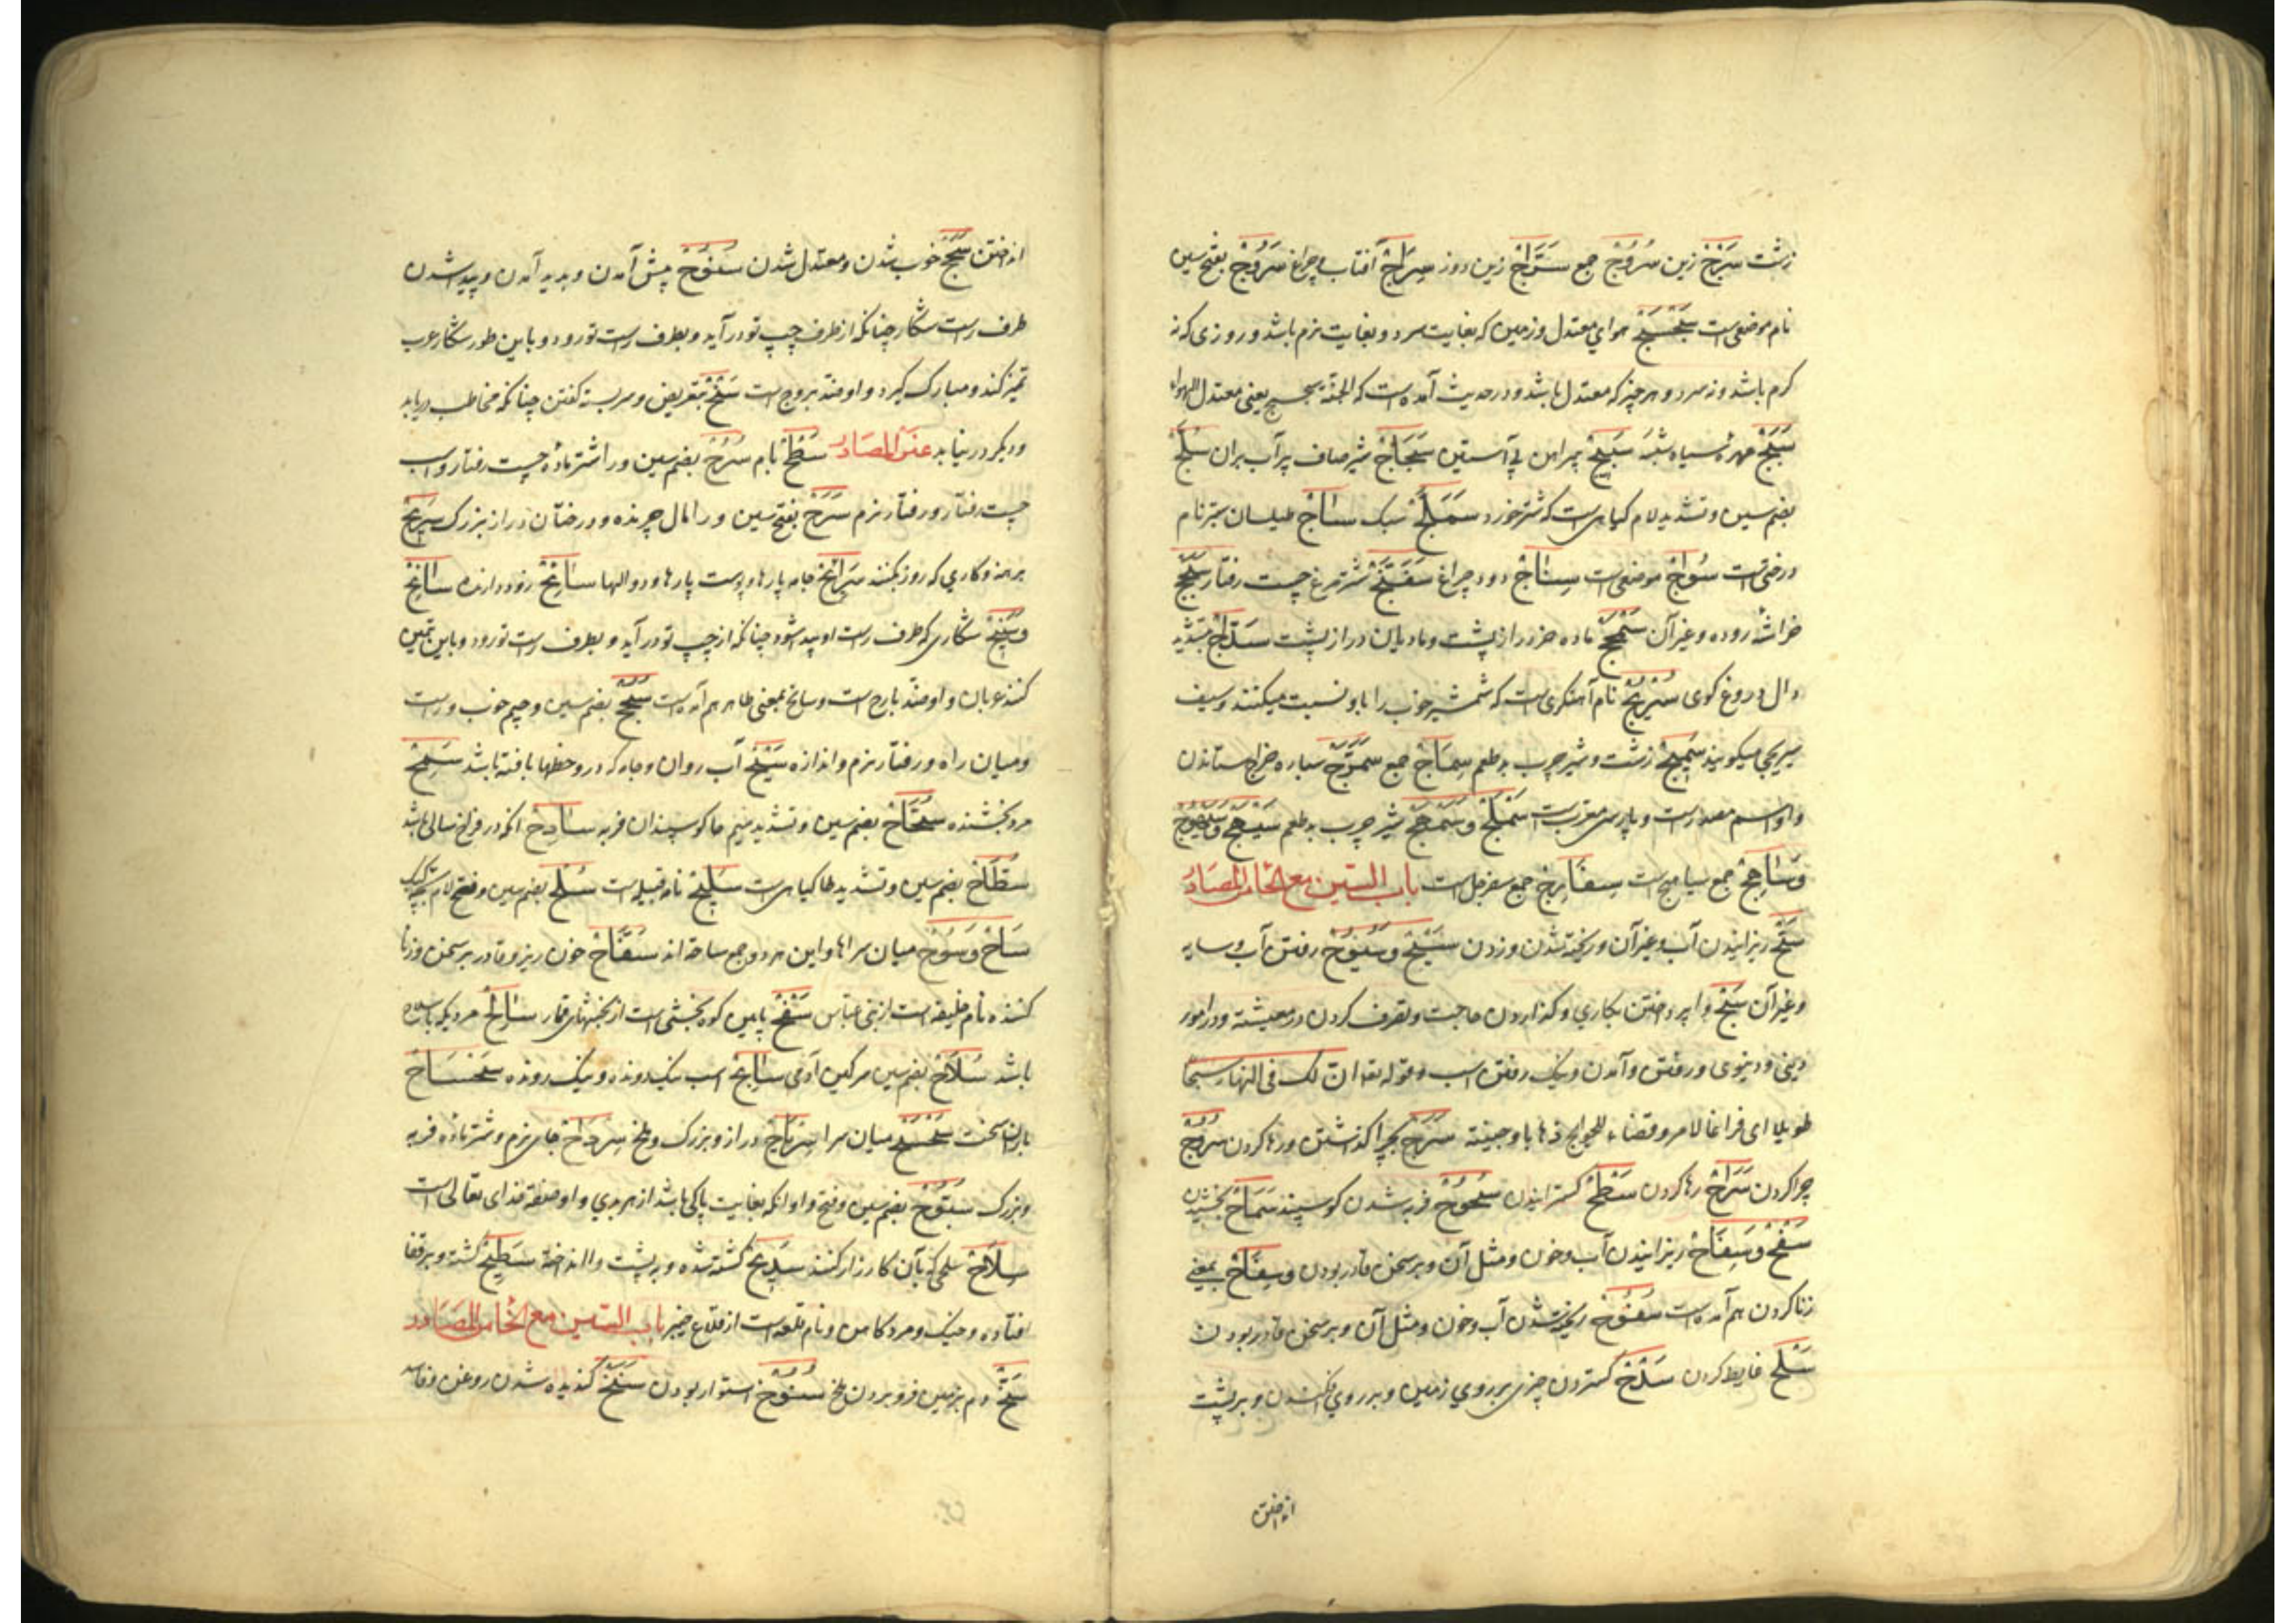 زشت سَرْج زین سُرُوج جمع سَرَّاج زین دوز سِرَاج آفتاب و چراغ سَرُوج بفتح سین
نام موضعی است سَجْسَج هوای معتدل و زمین که نه بغایت سرد و نه بغایت نرم باشد و روزی که نه
کرم باشد و نه سرد و هر چیز که معتدل باشد و در حدیث آمده است که الجنة سجسج یعنی معتدل الهواء
سَبَج مهره سیاه شبه سَبِیج پیراهن بی آستین سَجَاج شیر صاف پر آب بران سُلَّج
بضم سین و تشدید لام کیاهی است که شتر خورد سَمَلَّج سبک سَاج طیلسان سبز نام
درختی است سُوَاج موضعی است سِنَاج دود چراغ سَفَنَّج شتر مرغ چست رفتار سَحْج
خراشه روده و غیر آن سَمْحَج ماده خر دراز پشت و مادیان دراز پشت سَدَّاج بتشدید
دال دروغ کوی سُرَیْج نام آهنکری است که شمشیر خوب را باو نسبت میکنند و سیف
سریجی میکویند سَمِیج زشت و شیر چرب بد طعم سِمَاج جمع سَمَرَّج سه باره خراج ستاندن
و او اسم مصدر است و پارسی معرب است سَمْلَج و سَمْهَج شیر چرب بد طعم سَیْهَج و سَیْهُوج
و سَاهِج جمع سیاهج است سِفَارِج جمع سفرجل است باب السین مع الحاء من المصادر
سَحّ ریزانیدن آب و غیر آن و ریخته شدن و زدن سَیْح و سُیُوح رفتن آب و سایه
و غیر آن سَبْح وا پرداختن بکاری و کذاردن حاجت و تصرف کردن در معیشته و در امور
دینی و دنیوی و رفتن و آمدن و نیک رفتن اسب و قوله تعا ان لک فی النهار سبحا
طویلا ای فراغا لامر و قضاء للحوایج ذهابا و جیئته سَرْح بچرا کذاشتن و رها کردن سُرُوح
چرا کردن سَرَاح رها کردن سَطْح کسترانیدن سُحُوح فربه شدن کوسپند سَمَاح بخشیدن
سَفْح و سَفَاح ریزانیدن آب و خون و مثل آن و بر سخن قادر بودن و سِفَاح بمعنی
زنا کردن هم آمده است سُفُوح ریخته شدن آب و خون و مثل آن و بر سخن قادر بودن
سَلْح غایط کردن سَدْح کستردن چیزی بر روی زمین و بر روی افکندن و بر پشت
انداختن
انداختن سَجَح خوب شدن و معتدل شدن سُنُوح پیش آمدن و پدید آمدن و پیدا شدن
طرف راست شکار چنانکه از طرف چپ تو در آید و بطرف راست تو رود و باین طور شکار عرب
تمیز کند و مبارک کیرد و او ضد بروح است سَنْح بتعریض و سربسته کفتن چنانکه مخاطب دریابد
و دیکر در نیابد عن المصادر سَطْح بام سُرُح بضم سین و را اشتر ماده چست رفتار و اسب
چست رفتار و رفتار نرم سَرْح بفتح سین و را مال چرنده و درختان دراز بزرک سَرِیح
برهنه و کاری که زود بکنند سَرَائِح جامه پارها و پوست پارها و دوالها سَارِح رونده سَانِح
و سَنِیح شکاری که طرف راست او پیدا شود چنانکه از چپ تو در آید و بطرف راست تو رود و باین تیمن
کنند عربان و او ضد بارح است و سانح بمعنی ظاهر هم آمده است سُجُح بضم سین و جیم خوب و راست
و میان راه و رفتار نرم و اندازه سَیْح آب روان و جامه که درو خطها بافته باشد سَمْح
مرد بخشنده سُحَّاح بضم سین و تشدید میم حا کوسپندان فربه سَادِح انکه در فراخ سالی باشد
سُطَّاح بضم سین و تشدید طا کیاهی است سَلِیح نام قبیله است سُلَح بضم سین و فتح لام بچه کبک
سَاح و سُوح میان سراها و این هر دو جمع ساحة اند سَفَّاح خون ریز و قادر بر سخن و زنا
کننده و نام خلیفه است از بنی عباس سَفْح پایین کوه و بخشی است از بخشهای قمار سَالِح مردیکه با سلاح
باشد سُلَاح بضم سین سرکین آدمی سَابِح اسب نیک دونده و نیک رونده سَحْسَاح
باران سخت سَحْسَح میان سرا سِرْیَاح دراز و بزرک و ملخ سِرْدَاح جای نرم و شتر ماده فربه
و بزرک سُبُّوح بضم سین و فتح واو انکه بغایت پاکی باشد از هر بدی و او صفة خدای تعالی است
سِلَاح سلحی که بآن کارزار کنند سَدِیح کشته شده و بر پشت وا انداخته سَطِیح کشته و بر قفا
افتاده و خیک و مرد کاهن و نام قلعه است از قلاع خیبر باب السین مع الخاء من المصادر
سَخّ دم بزمین فرو بردن ملخ سُنُوخ استوار بودن سَنَخ کندیده شدن روغن و فاسد